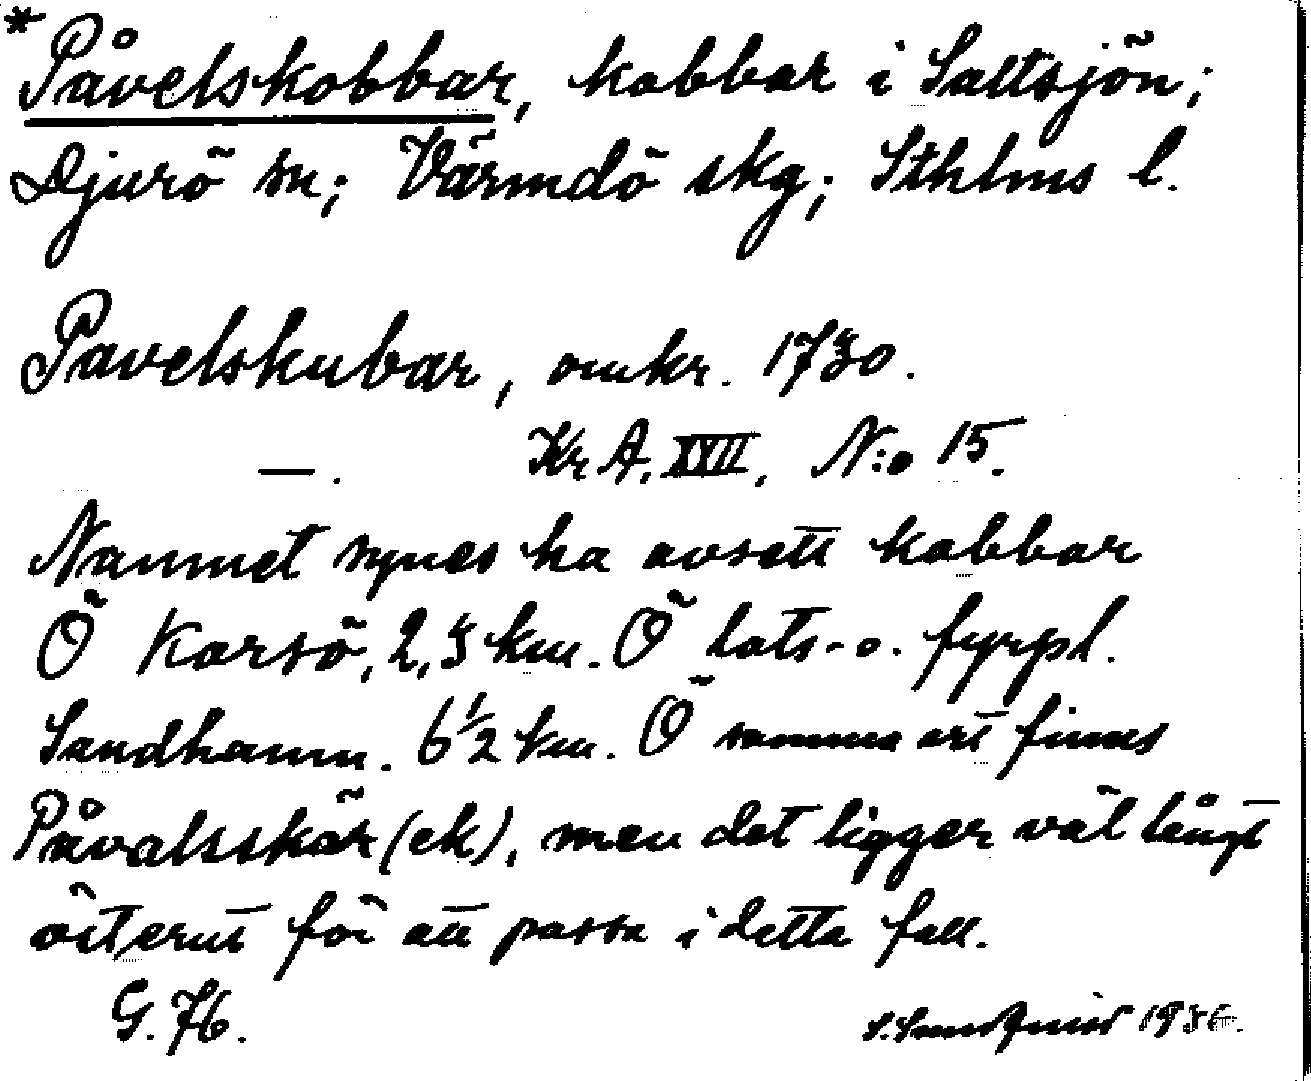 *Påvelskobbar, kobbar i Saltsjön;
Djurö sn; Värmdö skg; Sthlms l.
Pavelskubar, omkr. 1730.
—. Kr A. XVII, N:o 15.
Namnet synes ha avsett kobbar
Ö Korsö, 2,5 km. Ö lots- o. fyrpl.
Sandhamn. 6 1/2 km. Ö samma ort finnes
Påvalsskär (ek), men det ligger väl långt
österut för att passa i detta fall.
G. 76.
193